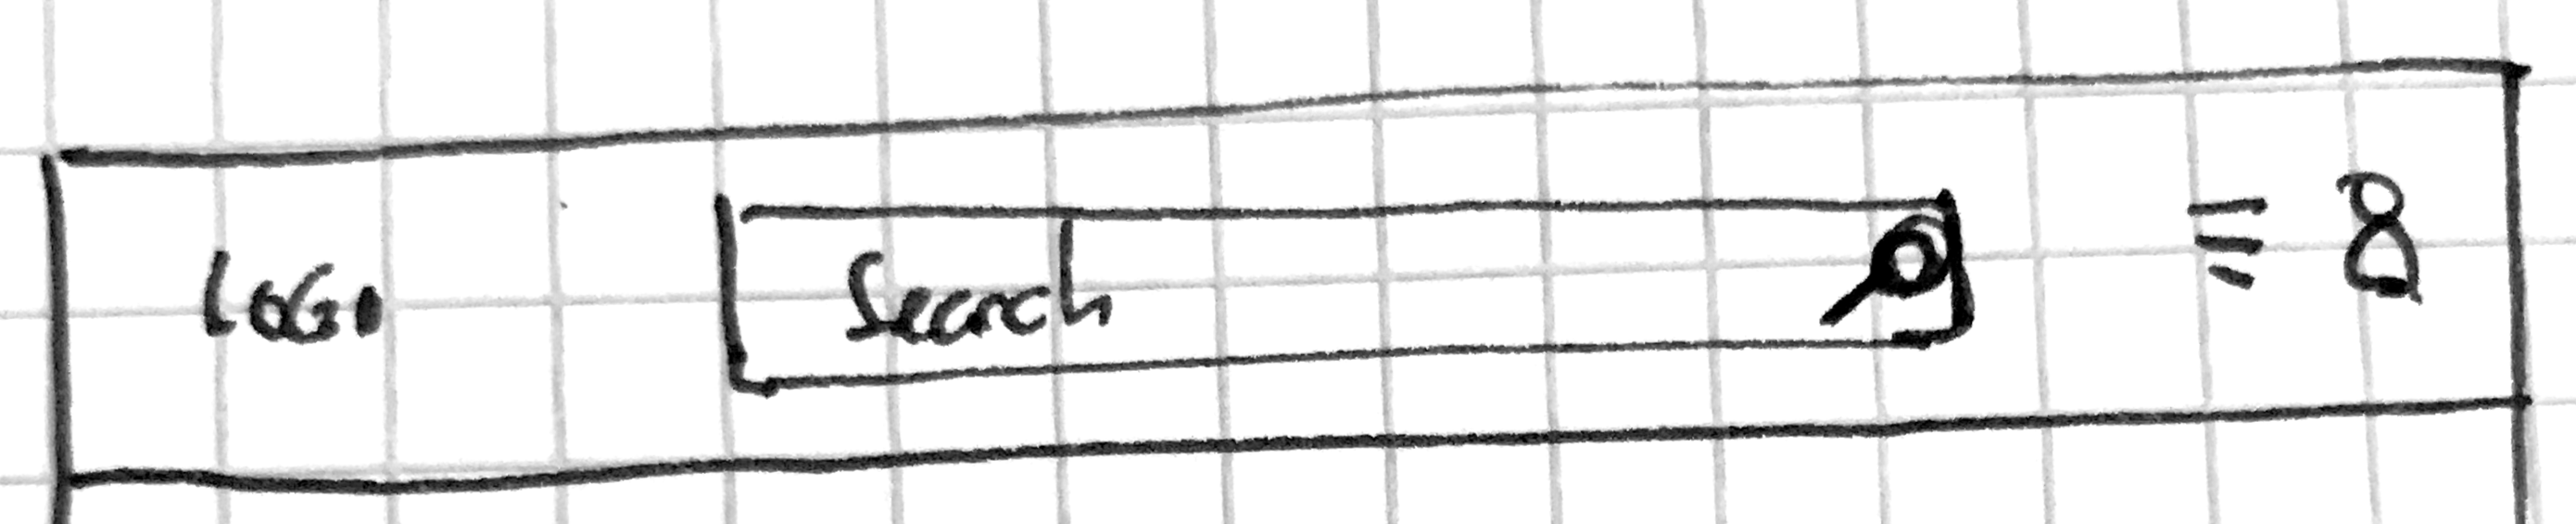 LOGO
Search